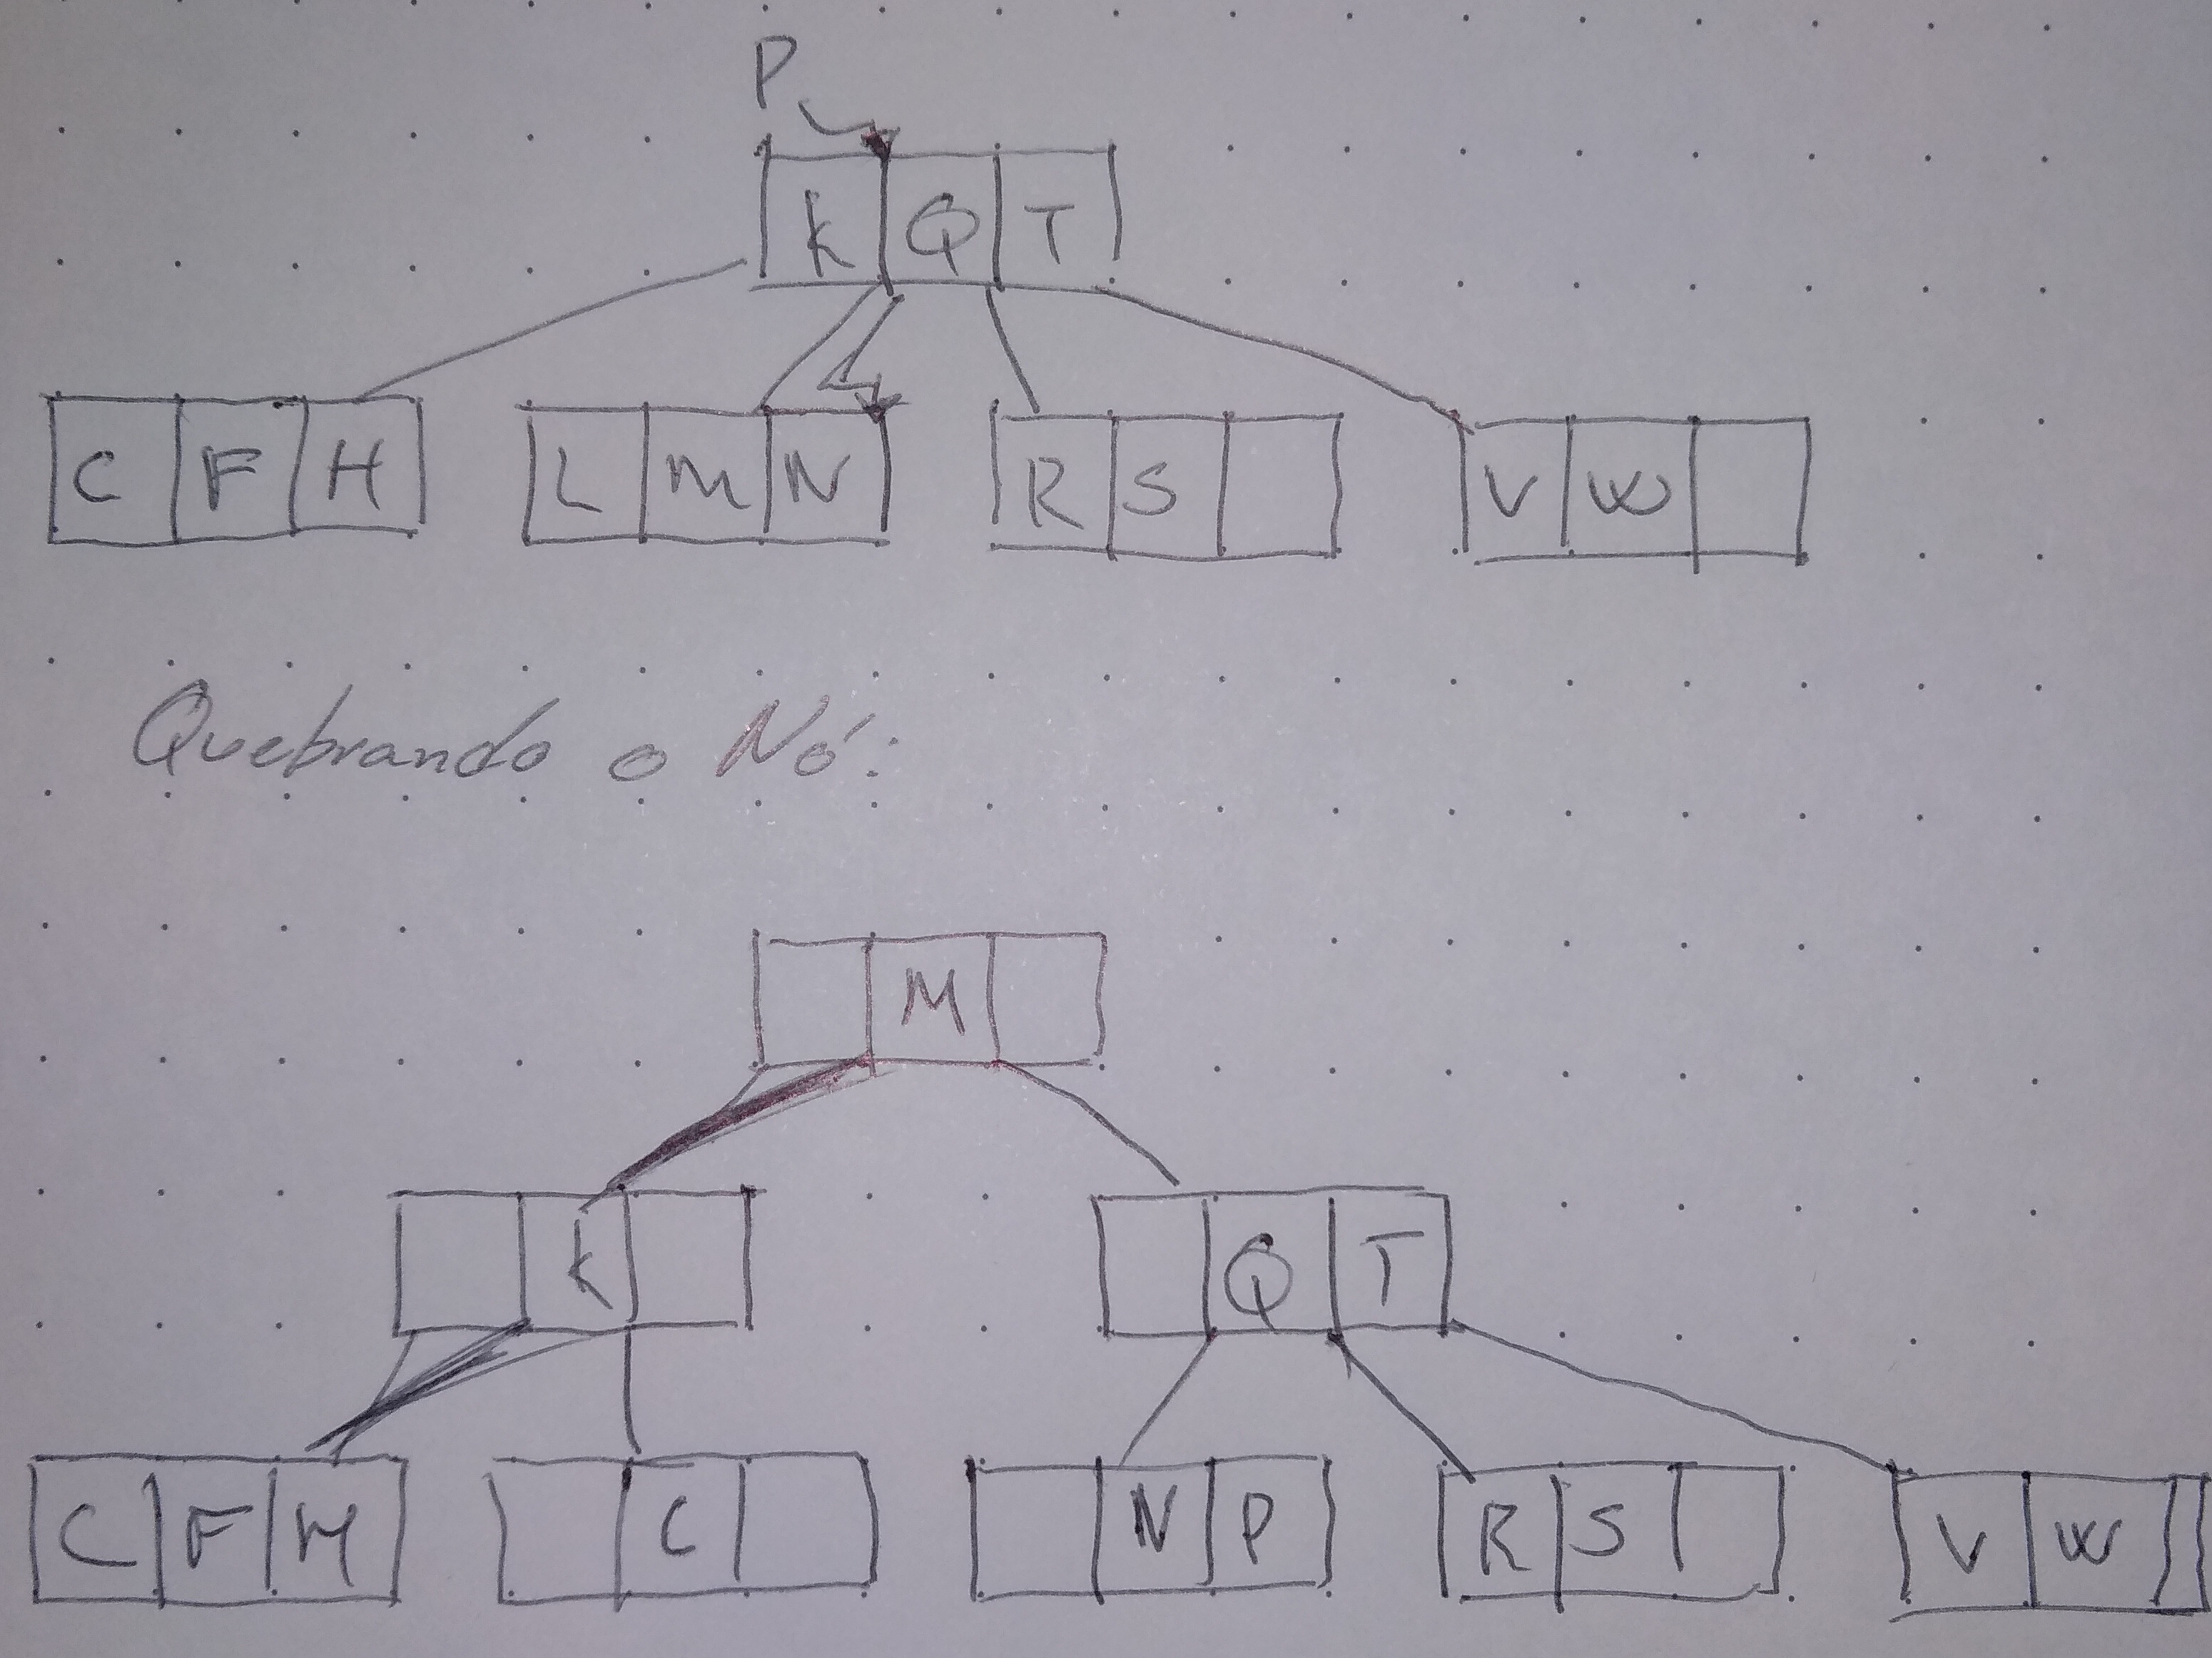 P
K Q T
C F H L M N R S V W
Quebrando o Nó:
M
K Q T
C F H C N P R S V W